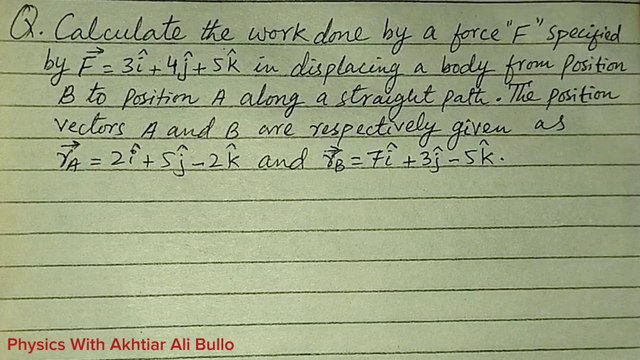 Q. Calculate the work done by a force "F" specified
by F⃗ = 3î + 4ĵ + 5k̂ in displacing a body from position
B to position A along a straight path. The position
vectors A and B are respectively given as
r⃗_A = 2î + 5ĵ - 2k̂ and r⃗_B = 7î + 3ĵ - 5k̂.
Physics With Akhtiar Ali Bullo